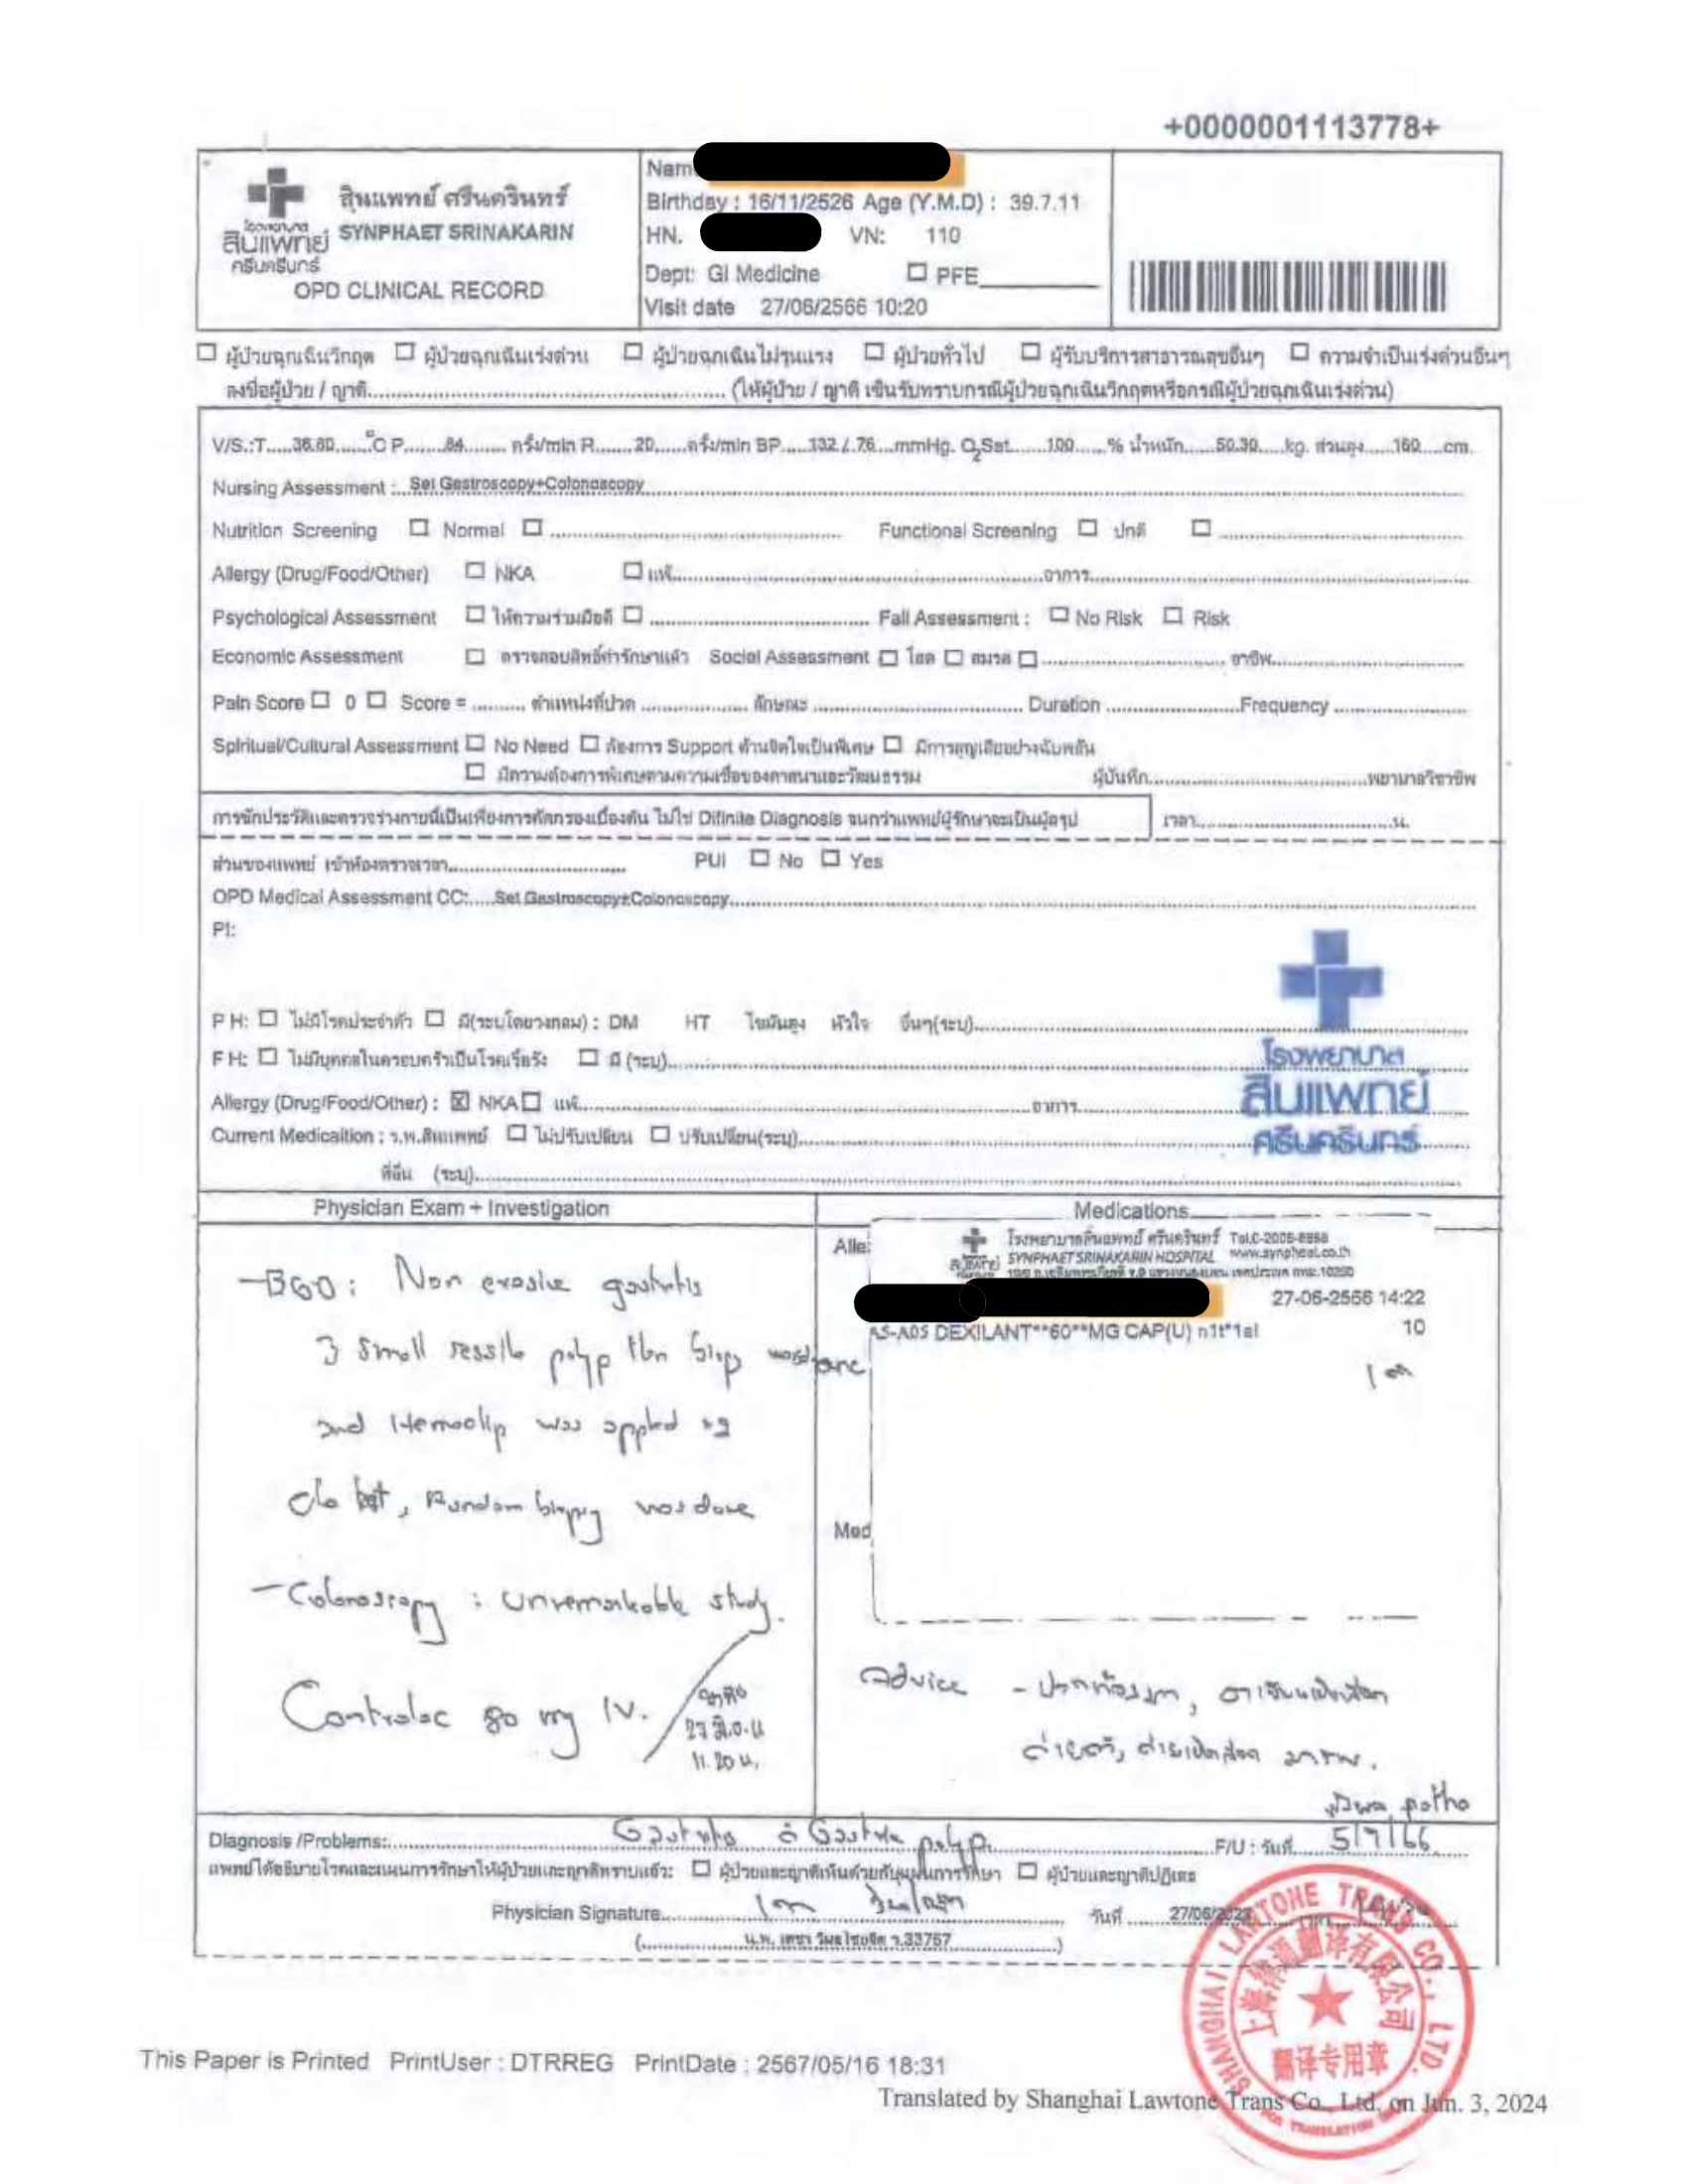 +0000001113778+
สินแพทย์ ศรีนครินทร์
SYNPHAET SRINAKARIN
โรงพยาบาล
สินแพทย์
ศรีนครินทร์
OPD CLINICAL RECORD
Nam
Birthday : 16/11/2526 Age (Y.M.D) : 39.7.11
HN. VN: 110
Dept: GI Medicine ☐ PFE
Visit date 27/06/2566 10:20
☐ ผู้ป่วยฉุกเฉินวิกฤต ☐ ผู้ป่วยฉุกเฉินเร่งด่วน ☐ ผู้ป่วยฉุกเฉินไม่รุนแรง ☐ ผู้ป่วยทั่วไป ☐ ผู้รับบริการสาธารณสุขอื่นๆ ☐ ความจำเป็นเร่งด่วนอื่นๆ
ลงชื่อผู้ป่วย / ญาติ.......... (ให้ผู้ป่วย / ญาติ เซ็นรับทราบกรณีผู้ป่วยฉุกเฉินวิกฤตหรือกรณีผู้ป่วยฉุกเฉินเร่งด่วน)
V/S.:T.....36.60......°C P.......84........ ครั้ง/min R.......20......ครั้ง/min BP.....132 / 76....mmHg. O2Sat.......100......% น้ำหนัก.....50.30....kg. ส่วนสูง.....160....cm.
Nursing Assessment : Set Gastroscopy+Colonoscopy
Nutrition Screening ☐ Normal ☐ .......... Functional Screening ☐ ปกติ ☐ ..........
Allergy (Drug/Food/Other) ☐ NKA ☐ แพ้..........อาการ..........
Psychological Assessment ☐ ให้ความร่วมมือดี ☐ .......... Fall Assessment : ☐ No Risk ☐ Risk
Economic Assessment ☐ ตรวจสอบสิทธิ์ค่ารักษาแล้ว Social Assessment ☐ โสด ☐ สมรส ☐ .......... อาชีพ..........
Pain Score ☐ 0 ☐ Score = .......... ตำแหน่งที่ปวด .......... ลักษณะ .......... Duration ..........Frequency ..........
Spiritual/Cultural Assessment ☐ No Need ☐ ต้องการ Support ด้านจิตใจเป็นพิเศษ ☐ มีการสูญเสียอย่างฉับพลัน
☐ มีความต้องการพิเศษตามความเชื่อของศาสนาและวัฒนธรรม ผู้บันทึก..........พยาบาลวิชาชีพ
การซักประวัติและตรวจร่างกายนี้เป็นเพียงการคัดกรองเบื้องต้น ไม่ใช่ Difinite Diagnosis จนกว่าแพทย์ผู้รักษาจะเป็นผู้สรุป เวลา..........น.
ส่วนของแพทย์ เข้าห้องตรวจเวลา.......... PUI ☐ No ☐ Yes
OPD Medical Assessment CC:.....Set Gastroscopy+Colonoscopy
PI:
P H: ☐ ไม่มีโรคประจำตัว ☐ มี(ระบุโดยวงกลม) : DM HT ไขมันสูง หัวใจ อื่นๆ(ระบุ)..........
F H: ☐ ไม่มีบุคคลในครอบครัวเป็นโรคเรื้อรัง ☐ มี (ระบุ)..........
Allergy (Drug/Food/Other) : ☒ NKA ☐ แพ้..........อาการ..........
Current Medicaltion : ร.พ.สินแพทย์ ☐ ไม่ปรับเปลี่ยน ☐ ปรับเปลี่ยน(ระบุ)..........
ที่อื่น (ระบุ)..........
โรงพยาบาล
สินแพทย์
ศรีนครินทร์
Physician Exam + Investigation
Medications
- EGD : Non erosive gastritis
3 small sessile polyp then biopsy was done
and Hemoclip was applied *2
clo test, Random biopsy was done
- Colonoscopy : Unremarkable study.
Controloc 80 mg IV.
27 มิ.ย. 11.20 น.
Alle
โรงพยาบาลสินแพทย์ ศรีนครินทร์ Tel.0-2006-8888
SYNPHAET SRINAKARIN HOSPITAL www.synphaet.co.th
27-06-2566 14:22
AS-A05 DEXILANT**60**MG CAP(U) n1t*1al 10
Med
Advice - ปวดท้องมาก, อาเจียนเป็นเลือด
ถ่ายดำ, ถ่ายเป็นเลือด มารพ.
patho
Diagnosis /Problems: Gastritis c Gastric polyp F/U : วันที่ 5/7/66
แพทย์ได้อธิบายโรคและแผนการรักษาให้ผู้ป่วยและญาติทราบแล้ว: ☐ ผู้ป่วยและญาติเห็นด้วยกับแผนการรักษา ☐ ผู้ป่วยและญาติปฏิเสธ
Physician Signature.......... วันที่ 27/06/2023
33767
This Paper is Printed PrintUser : DTRREG PrintDate : 2567/05/16 18:31
Translated by Shanghai Lawtone Trans Co., Ltd. on Jun. 3, 2024
SHANGHAI LAWTONE TRANS CO., LTD.
翻译专用章